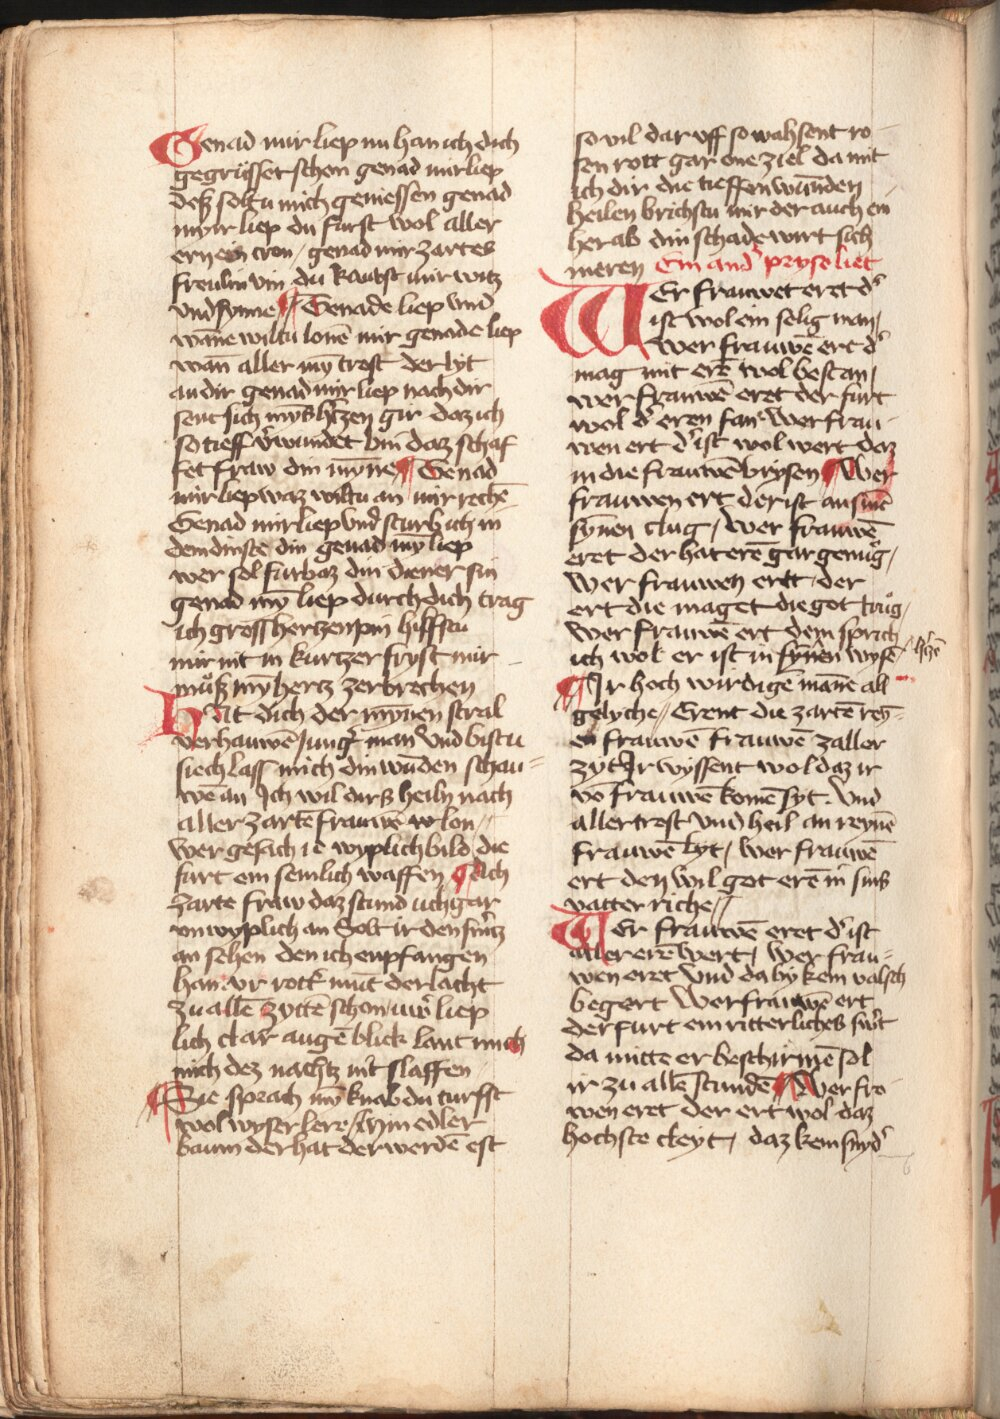 Genad mir liep nu han ich dich
gegrüsset schon genad mir liep
deß soltu mich geniessen genad
myr liep du furst wol aller
ern ein cron / genad mir zartes
freulin vin du kanbst mir witz
vnd synne ¶ Genade liep vnd
wāne wiltu lonē mir genade liep
wān aller mȳ trost der lyt
an dir genad mir liep nach dir
sent sich mȳs h'tzen gir daz ich
so tieff v'wundet bin daz schaf
fet fraw din mȳne ¶ Genad
mir liep waz wiltu an mir rechē
Genad mir liep vnd sturb ich in
dem dinste din genad mȳ liep
wer sol furbaz din diener sin
genad mȳ liep durch dich trag
ich gross hertzen pin hilfstu
mir nit in kurtzer fryst mir
můß mȳ hertz zerbrechen
Hat dich der mȳnen stral
verhauwē jung' man vnd bistu
siech lass mich din wūden schau=
wē an Ich wil dirß heiln nach
aller zartē frauwē w lon //
wer gesich ie wyplich bild die
furt ein semlich waffen ¶ Ach
zarte fraw daz stund uch gar
vnwyplich an Solt ir den smtz
an sehen den ich enpfangen
han vr rott mūt der lacht
zu allē zyttē schon uw' liep
lich clar augē blick lant mich
mich dez nachtz nit slaffen
¶ Sie sprach mȳ knab du turfst
wol wyser lere / An im edler
baum der hat der werdē est
so vil dar vff so wahsent ro-
sen rott gar one ziel da mit
ich dir die tieffen wūnden
heilen brichstu mir der auch ein
herab din schade wirt sich
meren Ein and' pryse liet
WEr frauwet eret d'
ist wol ein selig man /
Wer frauwē ert d'
mag mit erē wol bestan /
wer frauwē eret der furt
wol d' eren fan Wer frau-
wen ert d' ist wol wert daz
in die frauwē brysen ¶ Wer
frauwen ert der ist an sinē
synen clug / Wer frauwē
eret der hat erē gar genůg /
Wer frauwen ertt der
ert die maget die got trůg /
Wer frauwē ert dem sprich
ich wol er ist in synen wyse /
h'tzē
¶ Ir hoch wirdigē māne all
gelyche // Erent die zartē rey=
en frauwē frauwē zaller
zyt Ir wyssent wol daz ir
vō frauwē komē syt. Vnd
aller trost vnd heil an reynē
frauwē lyt / Wer frauwē
ert den wil got erē in sins
vatter riche //
WEr frauwē eret d' ist
aller erē wert / Wer frau=
wen eret vnd da by kem valsch
begert Wer frauwē ert
der furt ein ritterliches sw't
da mitte er beschirmē sol
ir zu allē stundē ¶ Wer fro-
wen eret der ert wol daz
hochste cleyt / daz kem snyd'